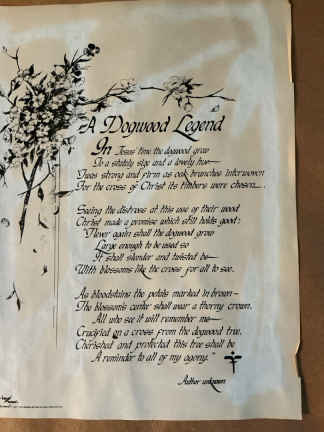 A Dogwood Legend
In Jesus' time the dogwood grew
To a stately size and a lovely hue
'Twas strong and firm as oak branches interwoven
For the cross of Christ its timbers were chosen...
Seeing the distress at this use of their wood
Christ made a promise which still holds good:
"Never again shall the dogwood grow
Large enough to be used so
It shall slender and twisted be
With blossoms like the cross for all to see.
As bloodstains the petals marked in brown-
The blossom's center shall wear a thorny crown.
All who see it will remember me
Crucified on a cross from the dogwood tree,
Cherished and protected this tree shall be
A reminder to all of my agony."
Author unknown